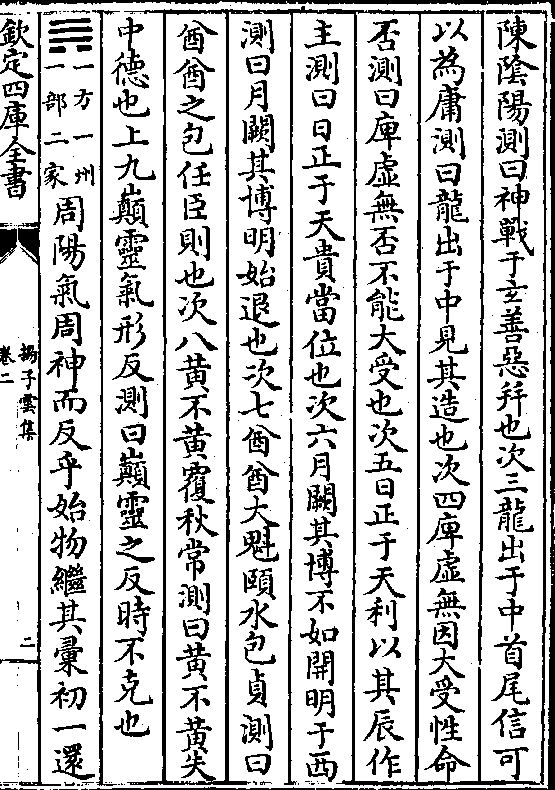 陳陰陽測曰神戰于𤣥善惡并也次三龍出于中首尾信可
以為庸測曰龍出于中見其造也次四庫虛無因大受性命
否測曰庫虛無否不能大受也次五日正于天利以其辰作
主測曰日正于天貴當位也次六月闕其博不如開明于西
測曰月闕其博明始退也次七酋酋大魁頤水包貞測曰
酋酋之包任臣則也次八黃不黃覆秋常測曰黃不黃失
中德也上九巔靈氣形反測曰巔靈之反時不克也
一方一州
一部二家
周陽氣周神而反乎始物繼其彚初一還
欽定四庫全書
揚子雲集
卷二
二